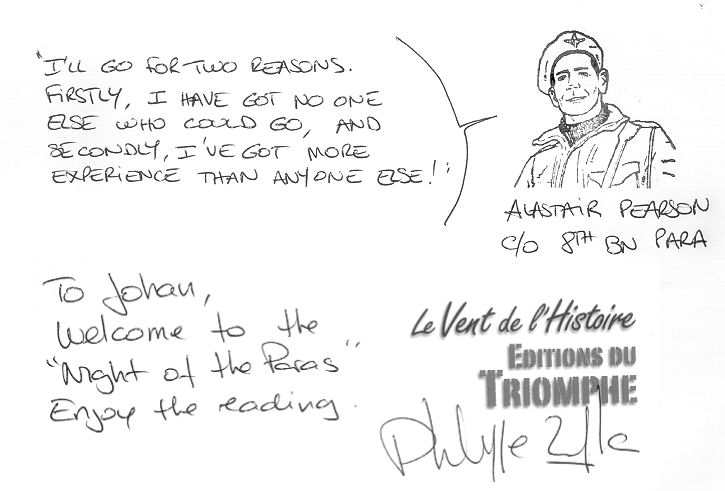 "I'LL GO FOR TWO REASONS.
FIRSTLY, I HAVE GOT NO ONE
ELSE WHO COULD GO, AND
SECONDLY, I'VE GOT MORE
EXPERIENCE THAN ANYONE ELSE!"
ALASTAIR PEARSON
C/O 8TH BN PARA
To Johan,
Welcome to the
"Night of the Paras"
Enjoy the reading.
Le Vent de l'Histoire
EDITIONS DU
TRIOMPHE